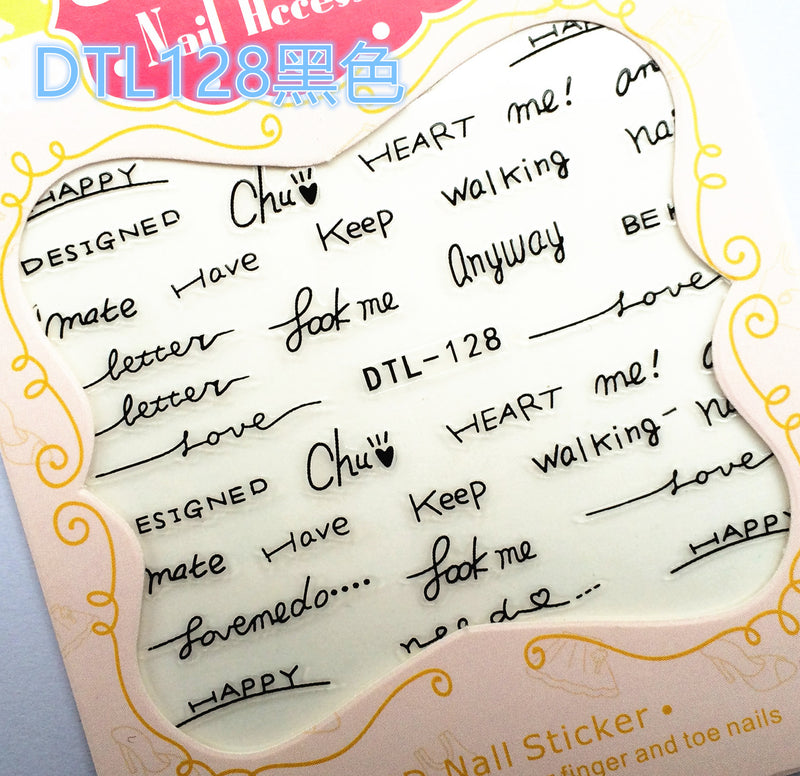 Nail Acces
DTL128黑色
HAPPY
HEART me! an
HAPPY Chu walking nai
DESIGNED Keep BE
mate Have Anyway
letter look me love
letter DTL-128
love HEART me!
Chu walking
ESIGNED Keep love
mate Have look me HAPPY
lovemedo....
HAPPY
Nail Sticker •
finger and toe nails